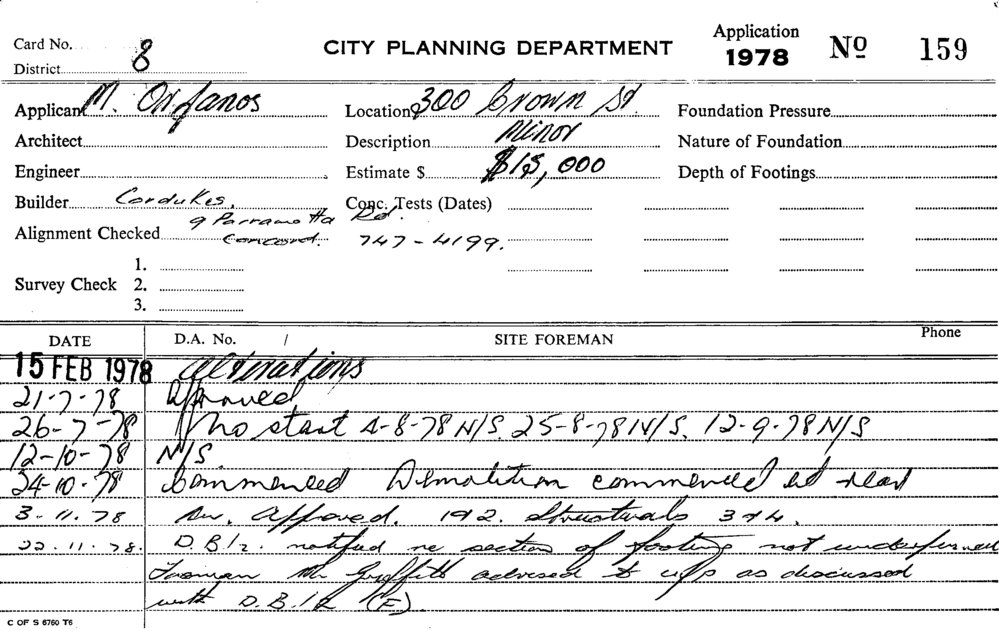 Card No. 8
District
CITY PLANNING DEPARTMENT
Application
1978 No 159
Applicant M. Orfanos
Location 300 Crown St.
Foundation Pressure
Architect
Description Minor
Nature of Foundation
Engineer
Estimate $ $15,000
Depth of Footings
Builder Cordukes.
Conc. Tests (Dates)
9 Parramatta Rd.
Alignment Checked Concord. 747-4199.
1.
Survey Check 2.
3.
DATE D.A. No. / SITE FOREMAN Phone
15 FEB 1978 Alterations
21-7-78 Approved
26-7-78 No start 4-8-78 N/S. 25-8-78 N/S. 12-9-78 N/S
12-10-78 N/S
24-10-78 Commenced Demolition commenced at rear
3-11-78 Approved. 1 & 2. Structurals 3 & 4.
22.11.78. D.B.I. notified re section of footing not underpinned
Foreman Mr Griffith advised to as discussed
with D.B.I. (F).
C OF S 6760 T6